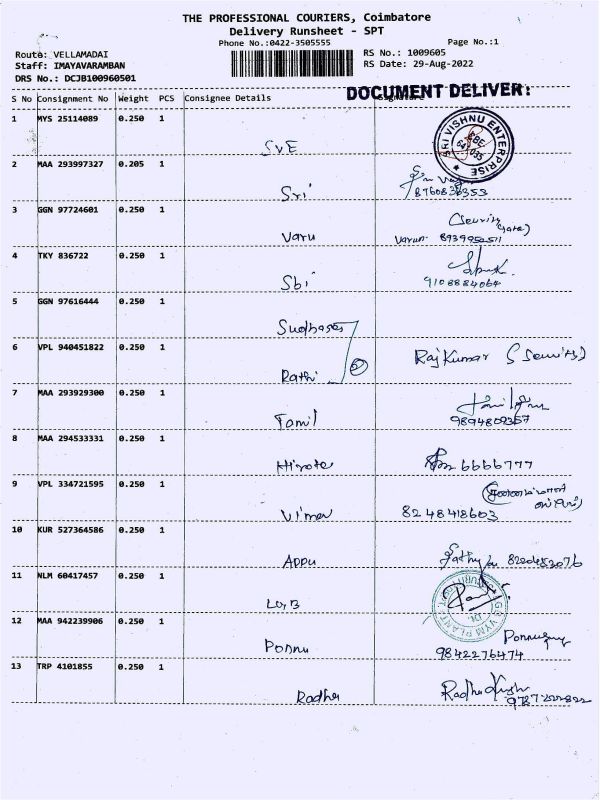 THE PROFESSIONAL COURIERS, Coimbatore
Delivery Runsheet - SPT
Phone No.:0422-3505555
Page No.:1
Route: VELLAMADAI
RS No.: 1009605
Staff: IMAYAVARAMBAN
RS Date: 29-Aug-2022
DRS No.: DCJB100960501
DOCUMENT DELIVER:
S No Consignment No Weight PCS Consignee Details Signature
1 MYS 25114089 0.250 1 SVE
SRI VISHNU ENTERPRISE
2 MAA 293997327 0.205 1 Sri
3 GGN 97724601 0.250 1 Varu
Varun
4 TKY 836722 0.250 1 Sbi
9108884064
5 GGN 97616444 0.250 1
6 VPL 940451822 0.250 1 Rathi Rajkumar
7 MAA 293929300 0.250 1 Tamil
9894809357
8 MAA 294533331 0.250 1 6666777
9 VPL 334721595 0.250 1
8248418603
10 KUR 527364586 0.250 1 Appu
8220452076
11 NLM 60417457 0.250 1
12 MAA 942239906 0.250 1 Ponnu
9842276474
13 TRP 4101855 0.250 1 Radha